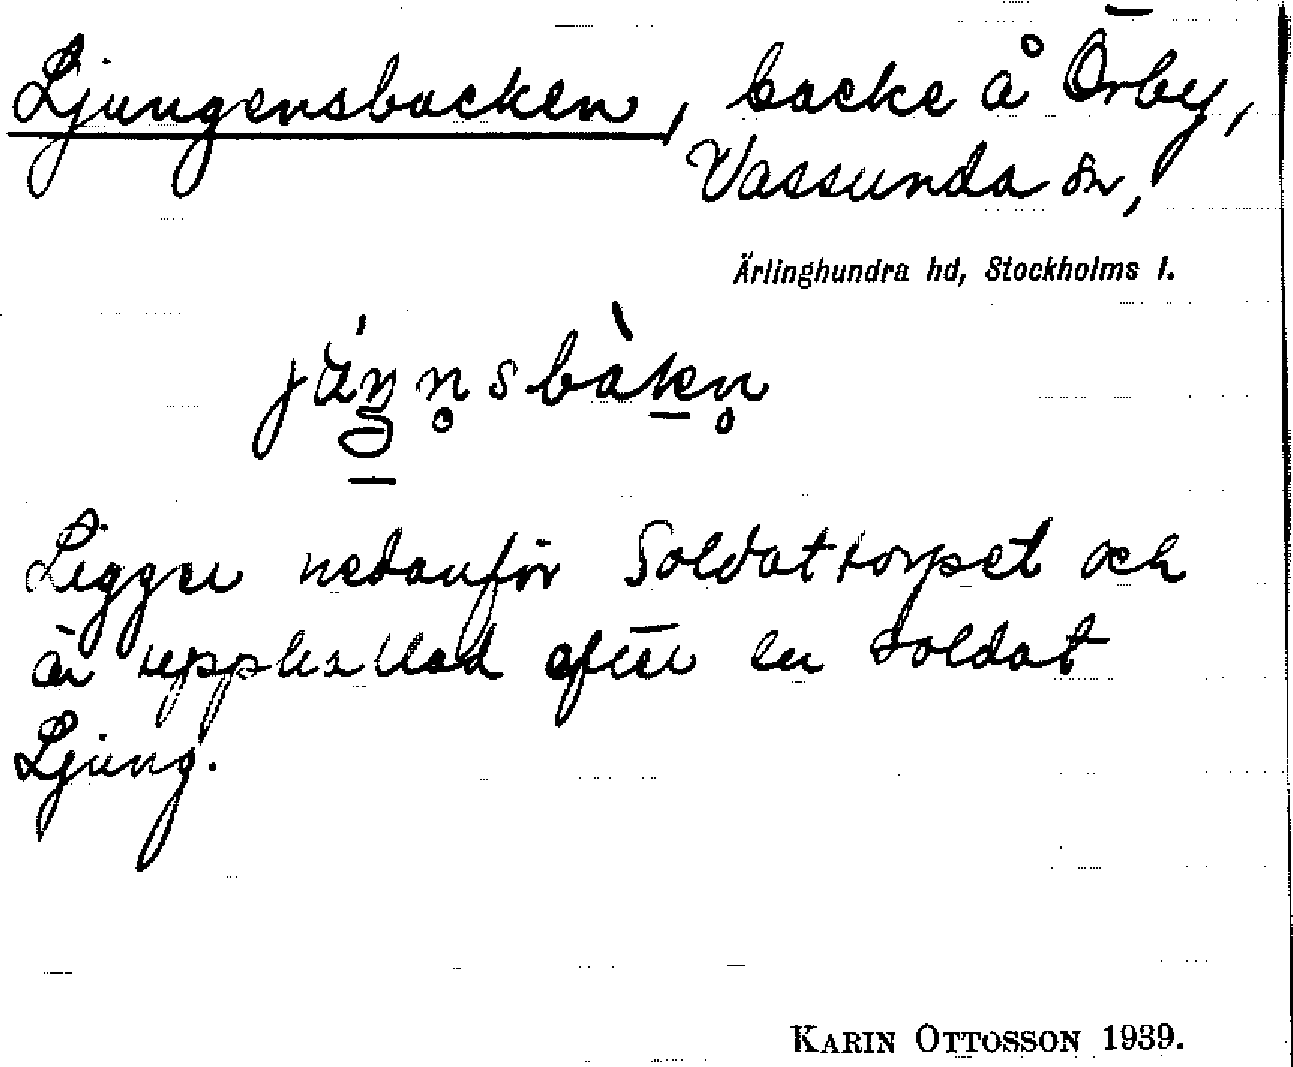 Ljungensbacken, backe å Örby,
Vassunda sn,
Ärlinghundra hd, Stockholms l.
Ligger nedanför Soldattorpet och
är uppkallad efter en soldat
Ljung.
KARIN OTTOSSON 1939.